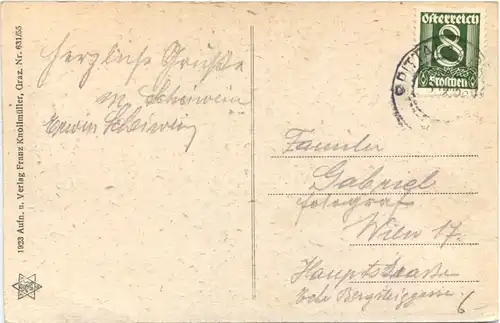 1923 Aufn. u. Verlag Franz Knollmüller, Graz. Nr. 631/55
Herzliche Grüße
Erwin
Österreich
8
Groschen
PITTA
Familie
Gabriel
Fotograf
Wien 17.
Hauptstraße
Ecke Bergsteiggasse 6